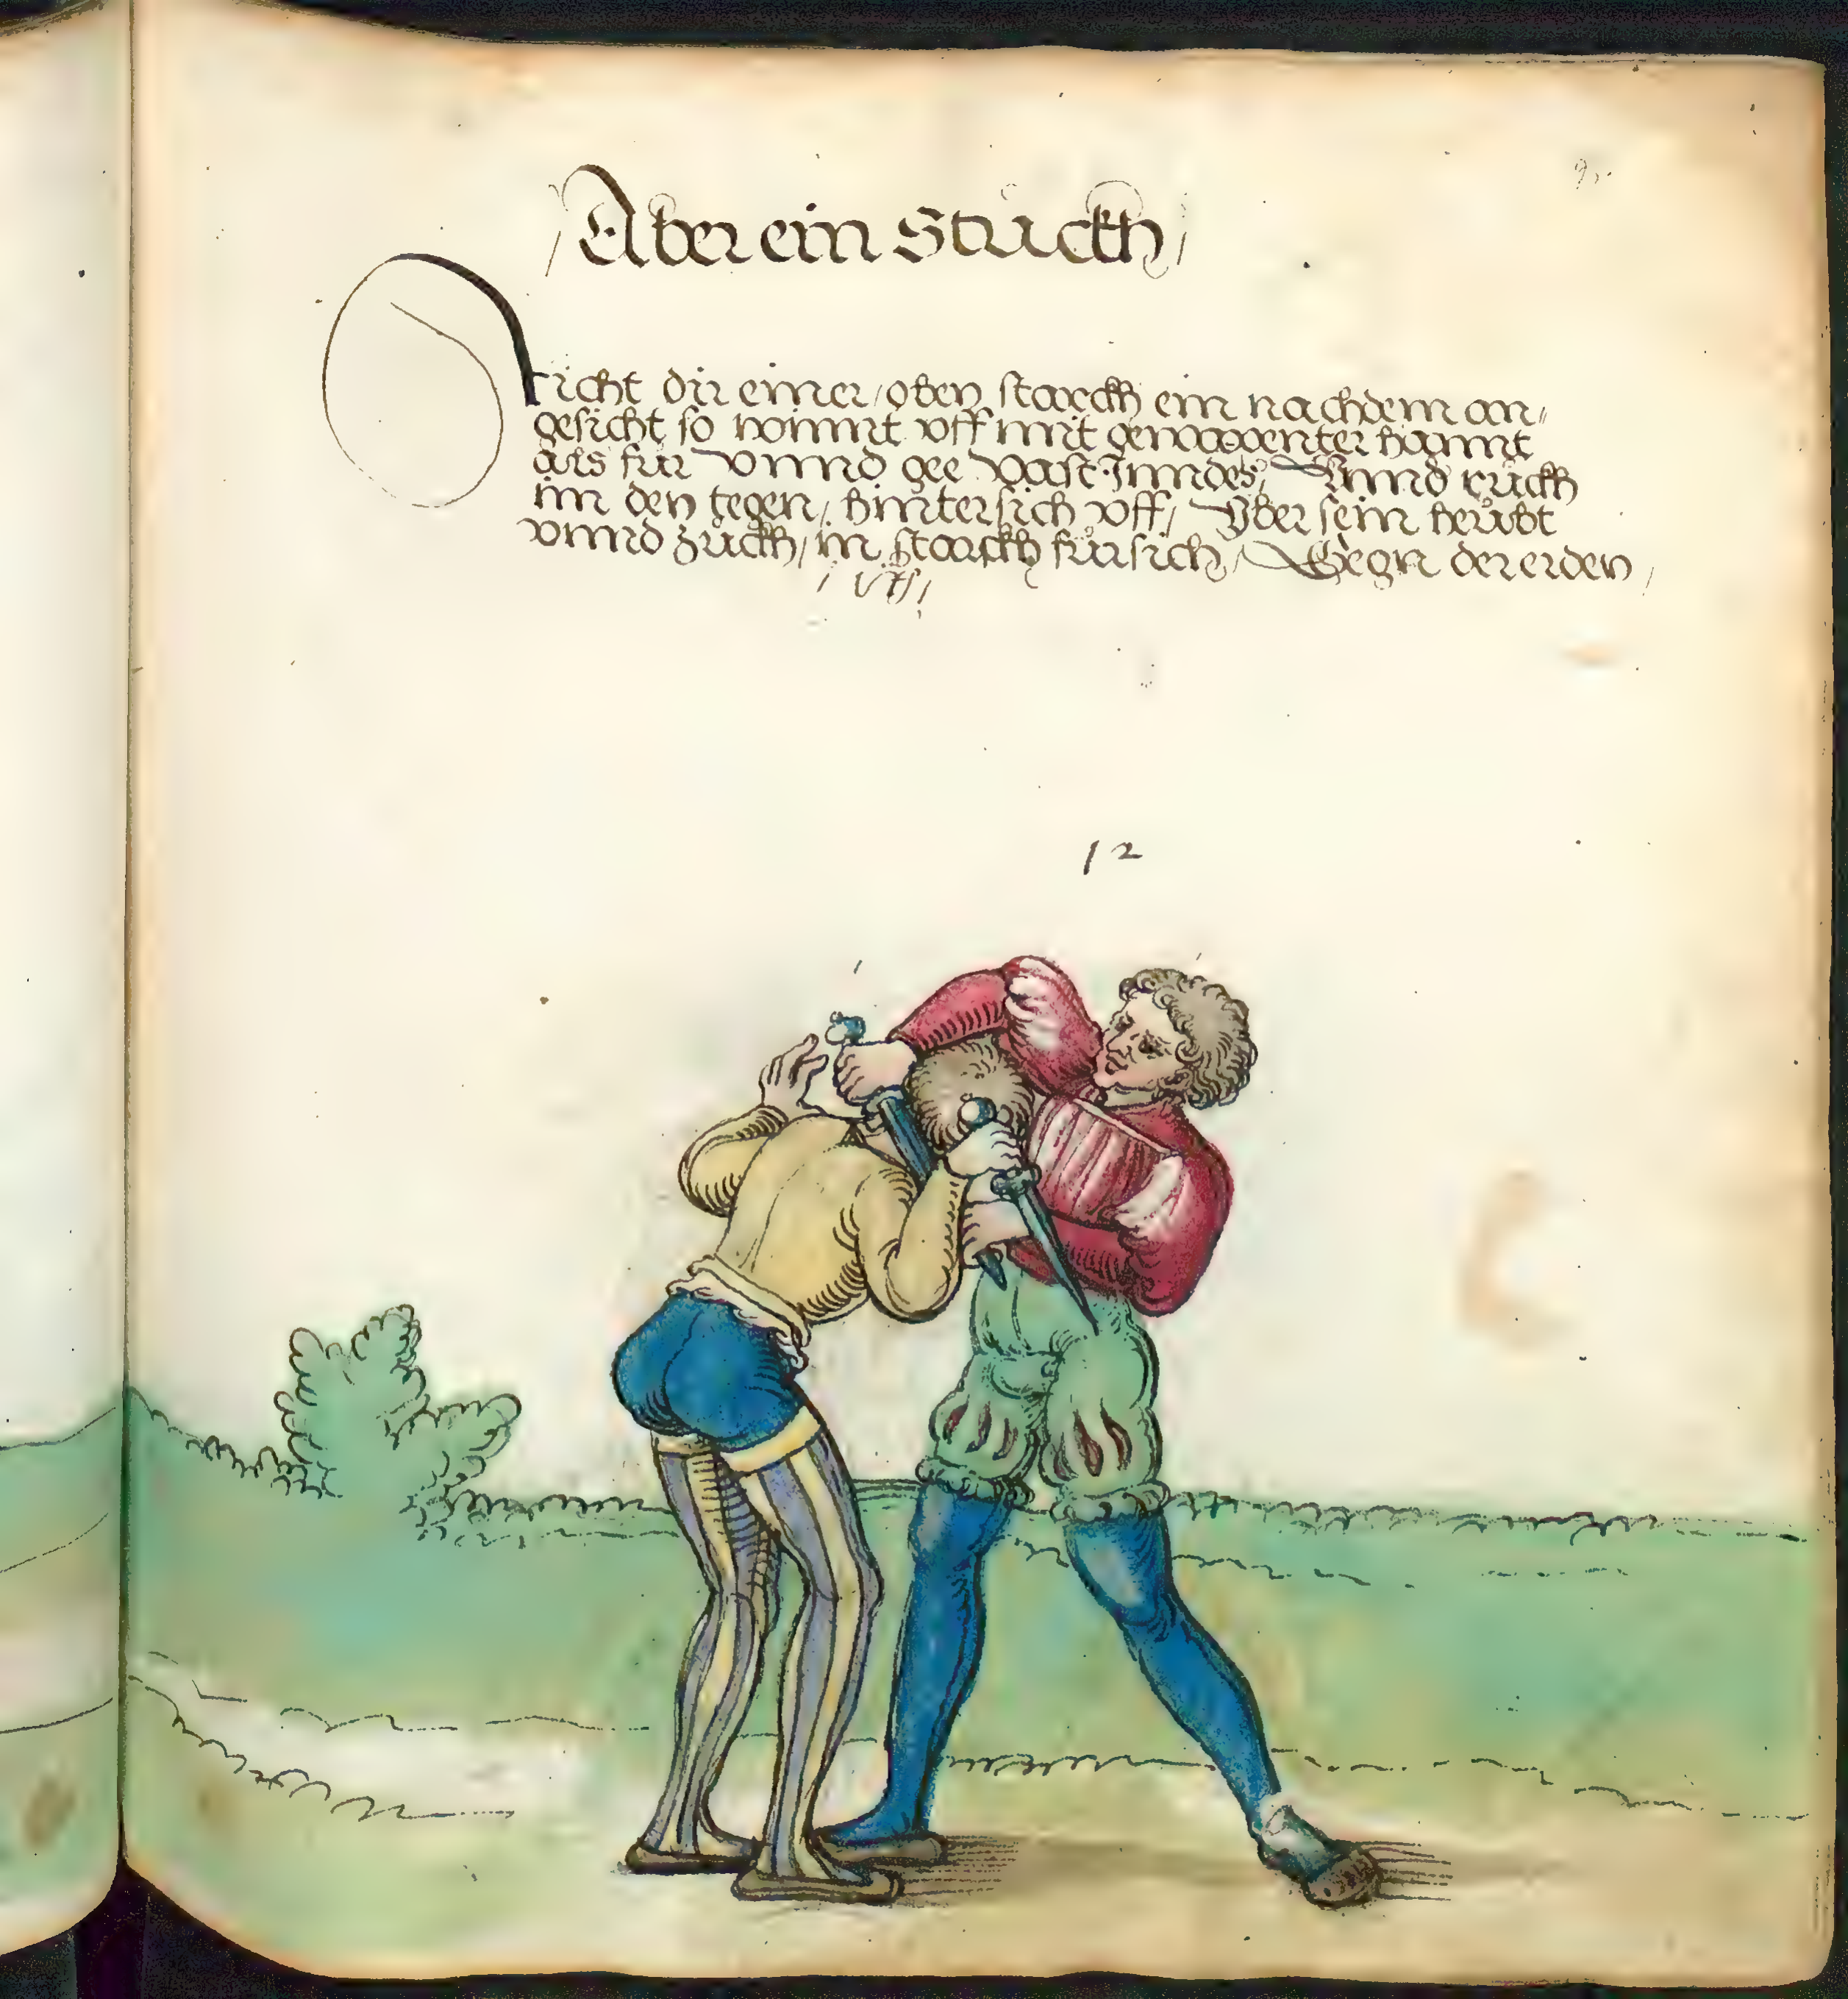 Aber ein Stuckh
richt dir einer / oben starckh ein nach dem an /
gesicht so nimmt uff mit gewappenter hannt
als für vnnd gee vast Inndes, Vnnd ruckh
im den tegen / hintersich vff / Vber sein heubt
vnnd zuckh / in starckh für sich / Gegn der erden /
12